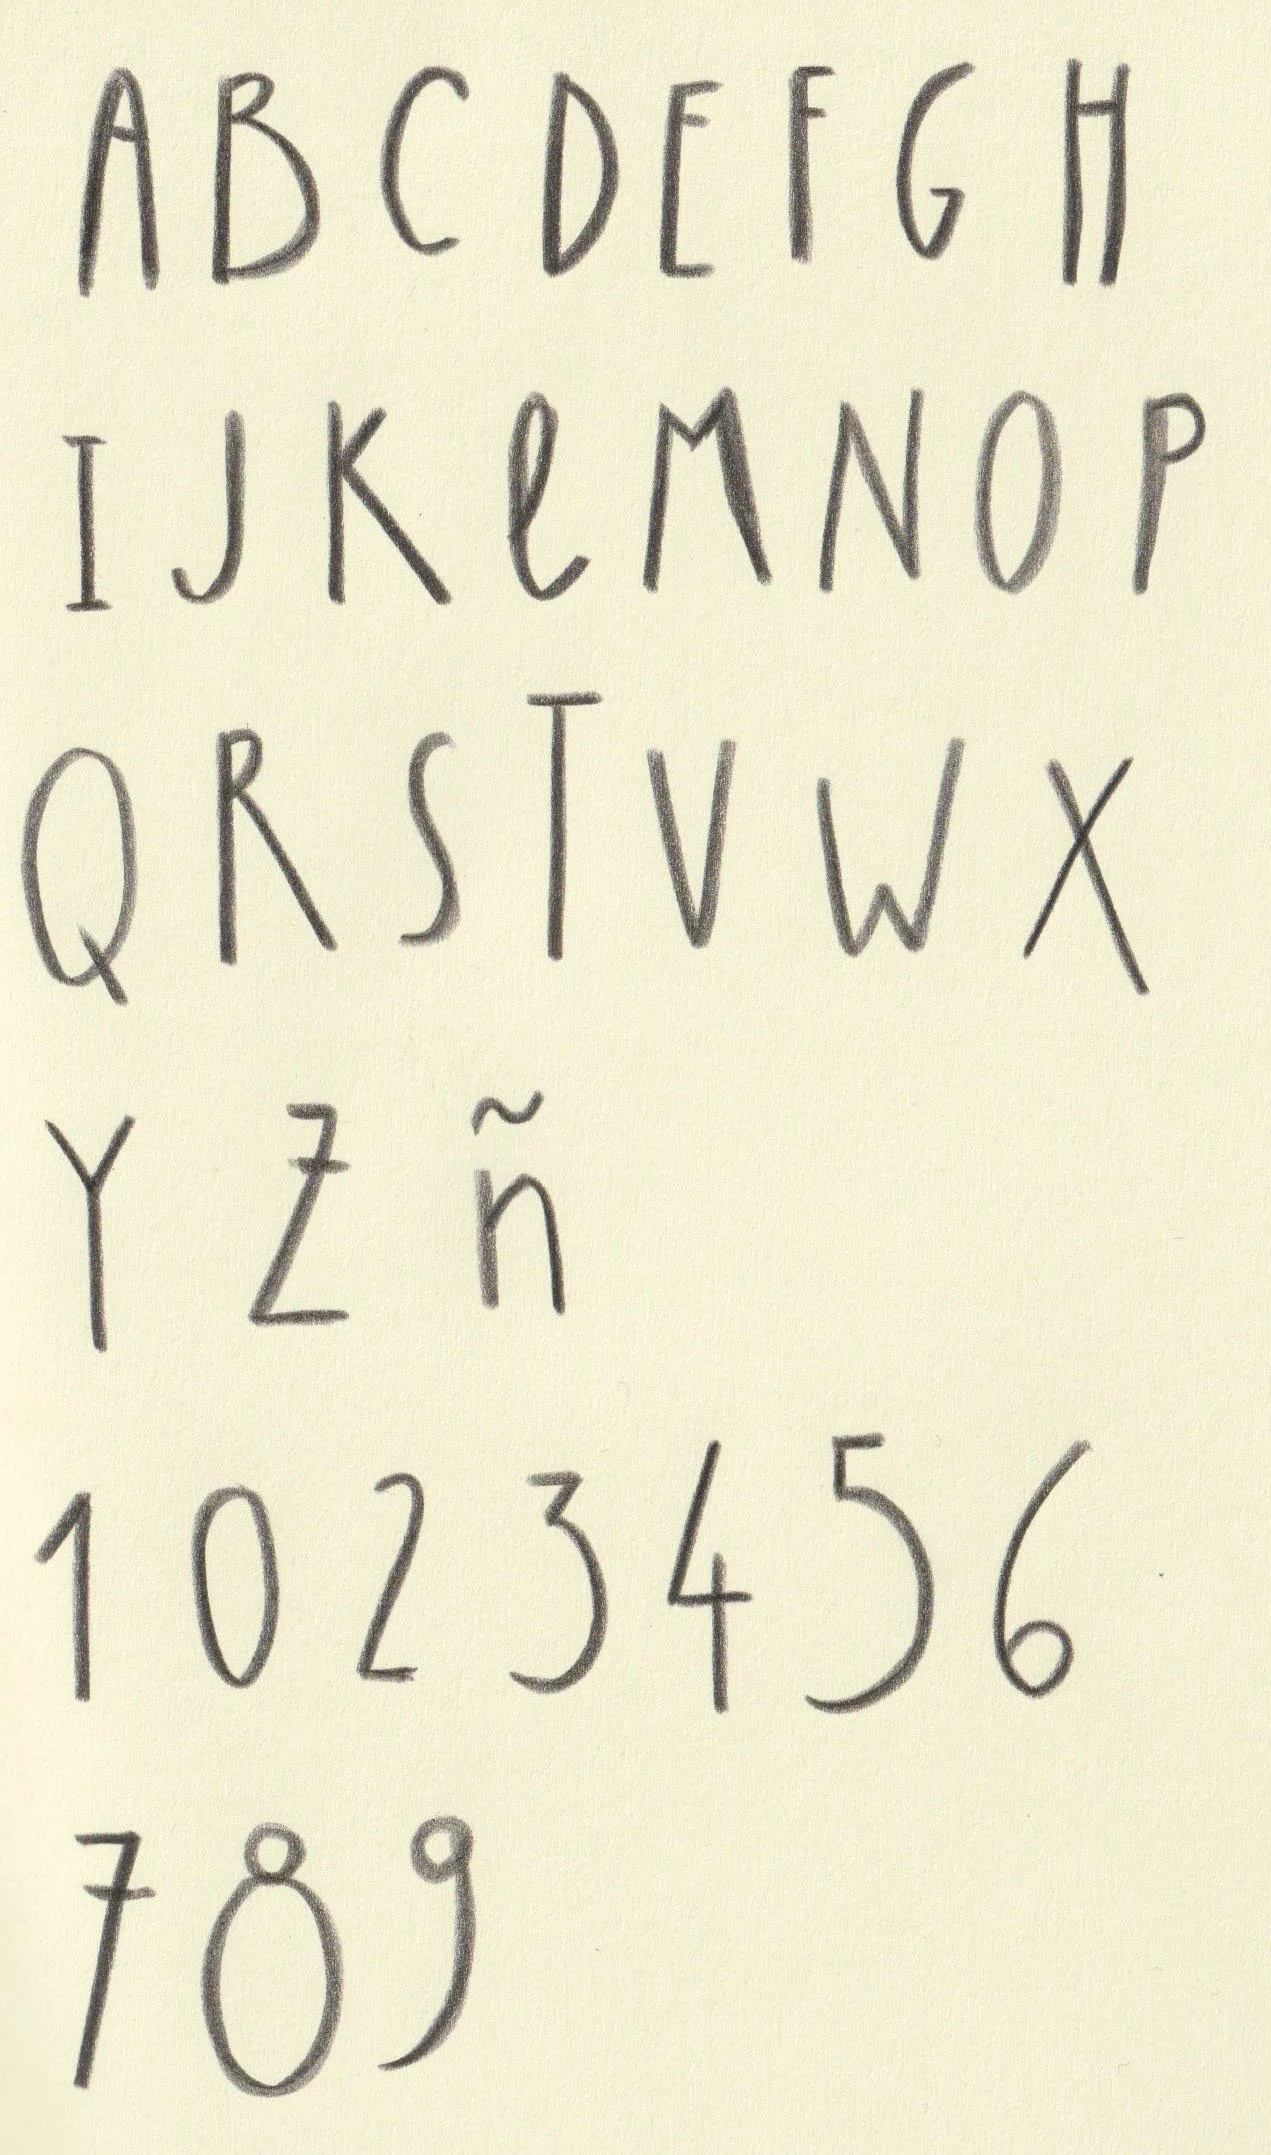 A B C D E F G H
I J K l M N O P
Q R S T V W X
Y Z ñ
1 0 2 3 4 5 6
7 8 9